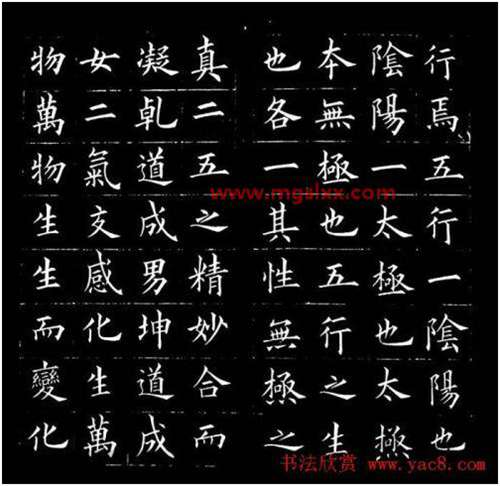 行焉五行一陰陽也
陰陽一太極也太極
本無極也五行之生
也各一其性無極之
真二五之精妙合而
凝乾道成男坤道成
女二氣交感化生萬
物萬物生生而變化
www.mgslxx.com
书法欣赏 www.yac8.com